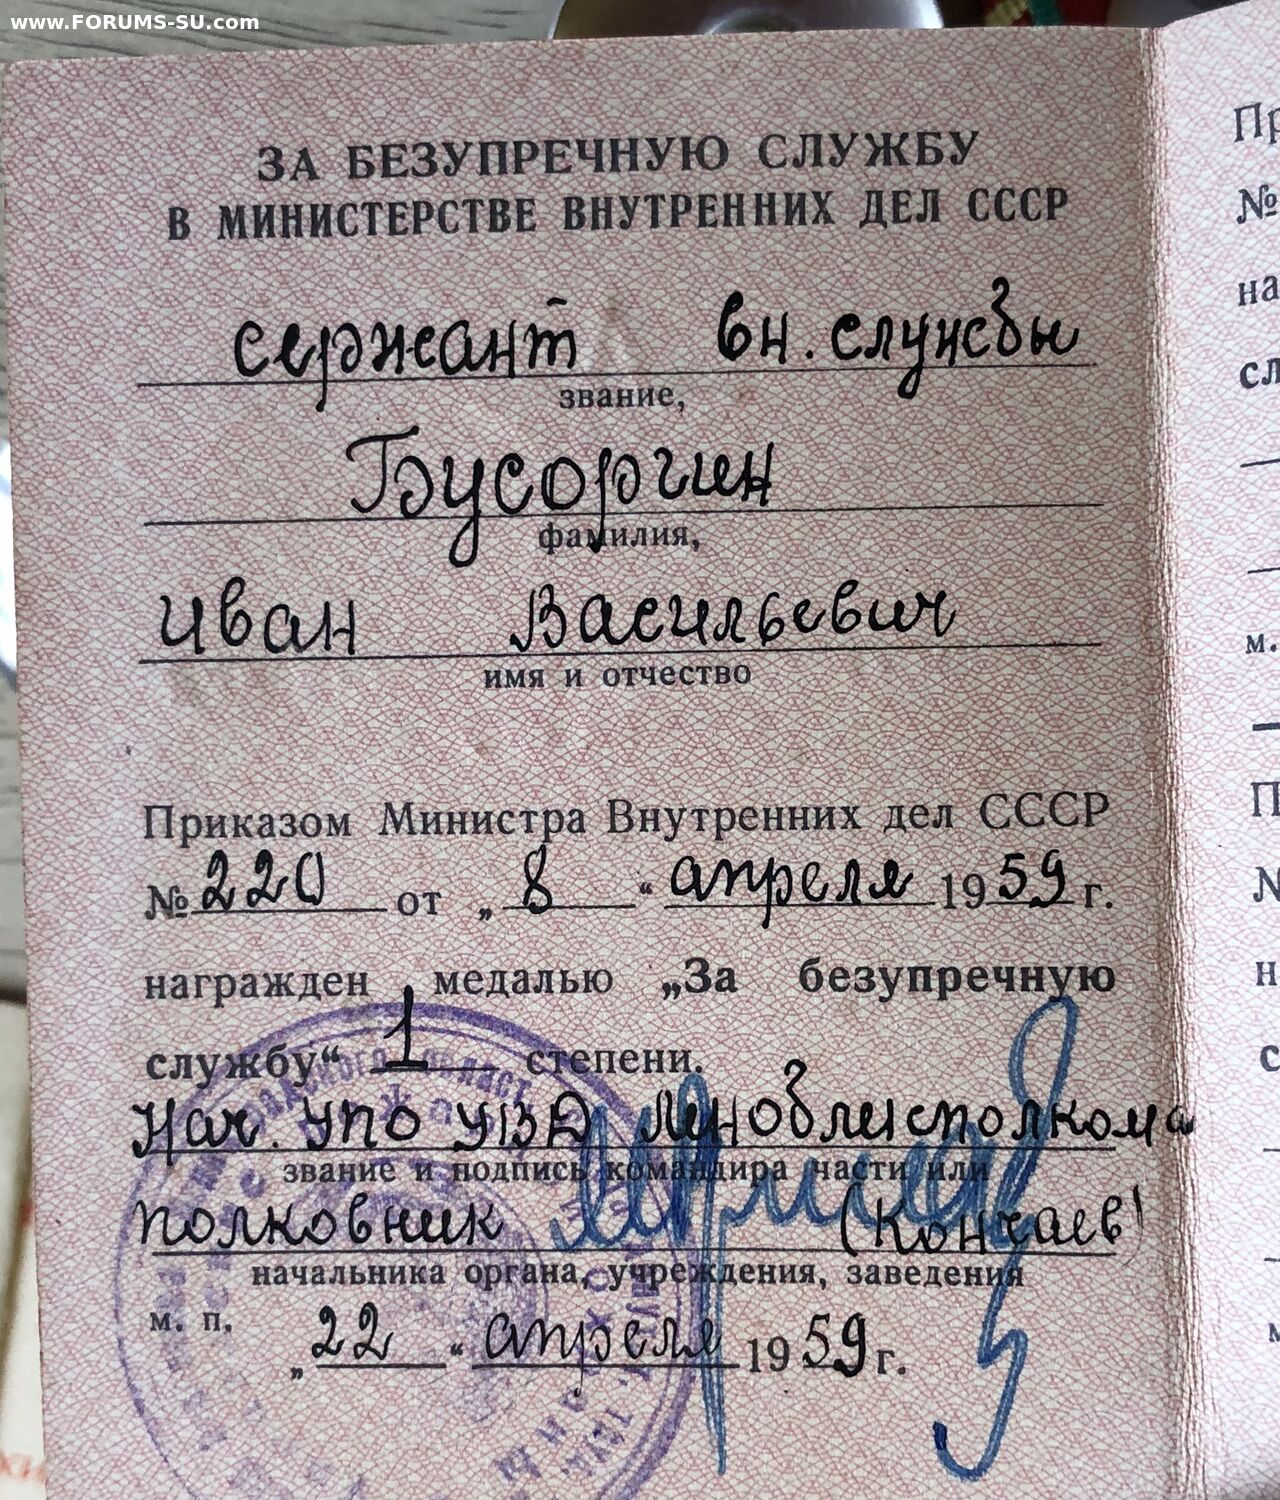 www.FORUMS-SU.com
ЗА БЕЗУПРЕЧНУЮ СЛУЖБУ
В МИНИСТЕРСТВЕ ВНУТРЕННИХ ДЕЛ СССР
сержант вн. службы
звание,
Бусоргин
фамилия,
Иван Васильевич
имя и отчество
Приказом Министра Внутренних дел СССР
№ 220 от „8“ апреля 1959 г.
награжден медалью „За безупречную
службу“ 1 степени.
Нач. УПО УВД Леноблисполкома
звание и подпись командира части или
полковник (Кончаев)
начальника органа, учреждения, заведения
м. п.
„22“ апреля 1959 г.
Пр
№
на
сл
м.
П
№
н
с
м